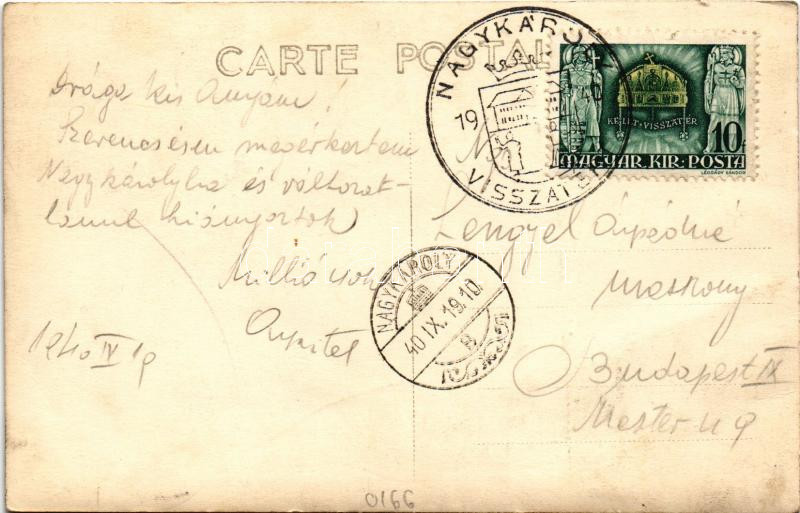 CARTE POSTALE
NAGYKÁROLY
19
VISSZATÉRT
KELET · VISSZATÉR
10f
MAGYAR·KIR·POSTA
LÉGRÁDY SÁNDOR
Drága kis Anyám!
Szerencsésen megérkeztem
Nagykárolyba és változat-
lanul hiányoztok
Millió csók
1940 IX 19
NAGYKÁROLY
40 IX. 19. 10.
B
Lengyel Árpádné
Budapest IX
Mester u 9
0166